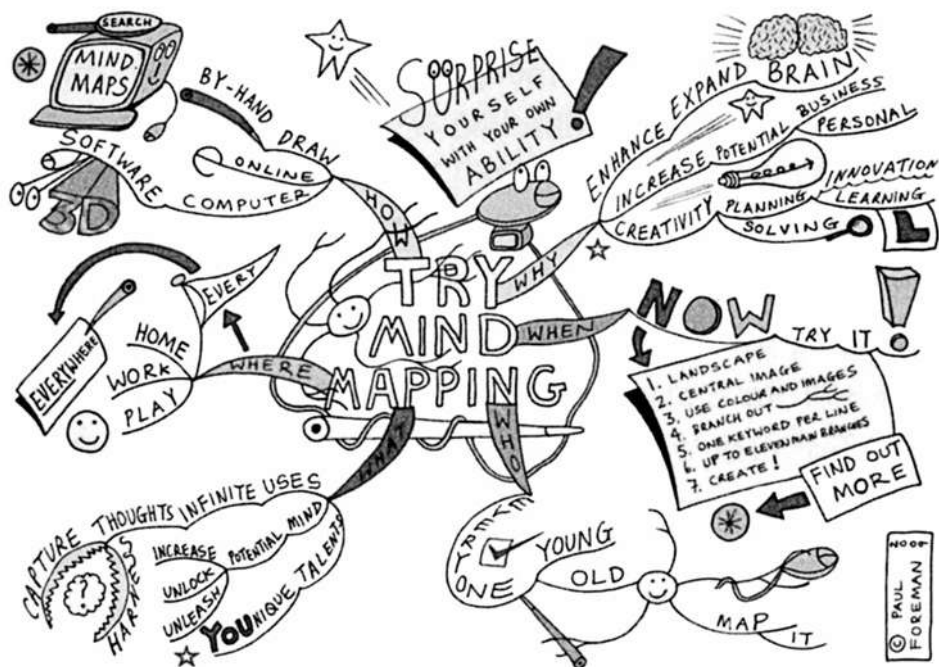 SEARCH
MIND
MAPS
BY-HAND DRAW
ONLINE
SOFTWARE
COMPUTER
3D
HOW
SURPRISE
YOURSELF
WITH YOUR OWN
ABILITY
!
WHY
ENHANCE EXPAND BRAIN
INCREASE POTENTIAL BUSINESS
PERSONAL
CREATIVITY PLANNING INNOVATION
LEARNING
SOLVING
L
TRY
MIND
MAPPING
WHEN
NOW
TRY IT !
1. LANDSCAPE
2. CENTRAL IMAGE
3. USE COLOUR AND IMAGES
4. BRANCH OUT
5. ONE KEYWORD PER LINE
6. UP TO ELEVEN MAIN BRANCHES
7. CREATE!
FIND OUT
MORE
WHERE
EVERY
HOME
WORK
PLAY
EVERYWHERE
WHAT
CAPTURE THOUGHTS INFINITE USES
HARNESS
INCREASE POTENTIAL MIND
UNLOCK
UNLEASH
YOUNIQUE TALENTS
WHO
EVERYONE
YOUNG
OLD
MAP
IT
© PAUL
FOREMAN